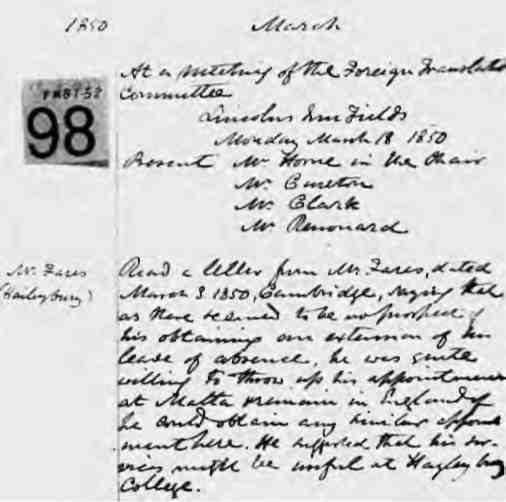 1850 March
At a meeting of the Foreign Translation
Committee
Lincolns Inn Fields
Monday March 18 1850
FMBT52
98
Present Mr Horne in the Chair
Mr. Cureton
Mr. Clark
Mr Renouard
Mr. Fares
(Haileybury)
Read a letter from Mr. Fares, dated
March 3. 1850, Cambridge, saying that
as there seemed to be no prospect of
his obtaining an extension of his
leave of absence, he was quite
willing to throw up his appointment
at Malta & remain in England if
he could obtain any similar appoint
ment here. He suggested that his ser-
vices might be useful at Hayleybury
College.